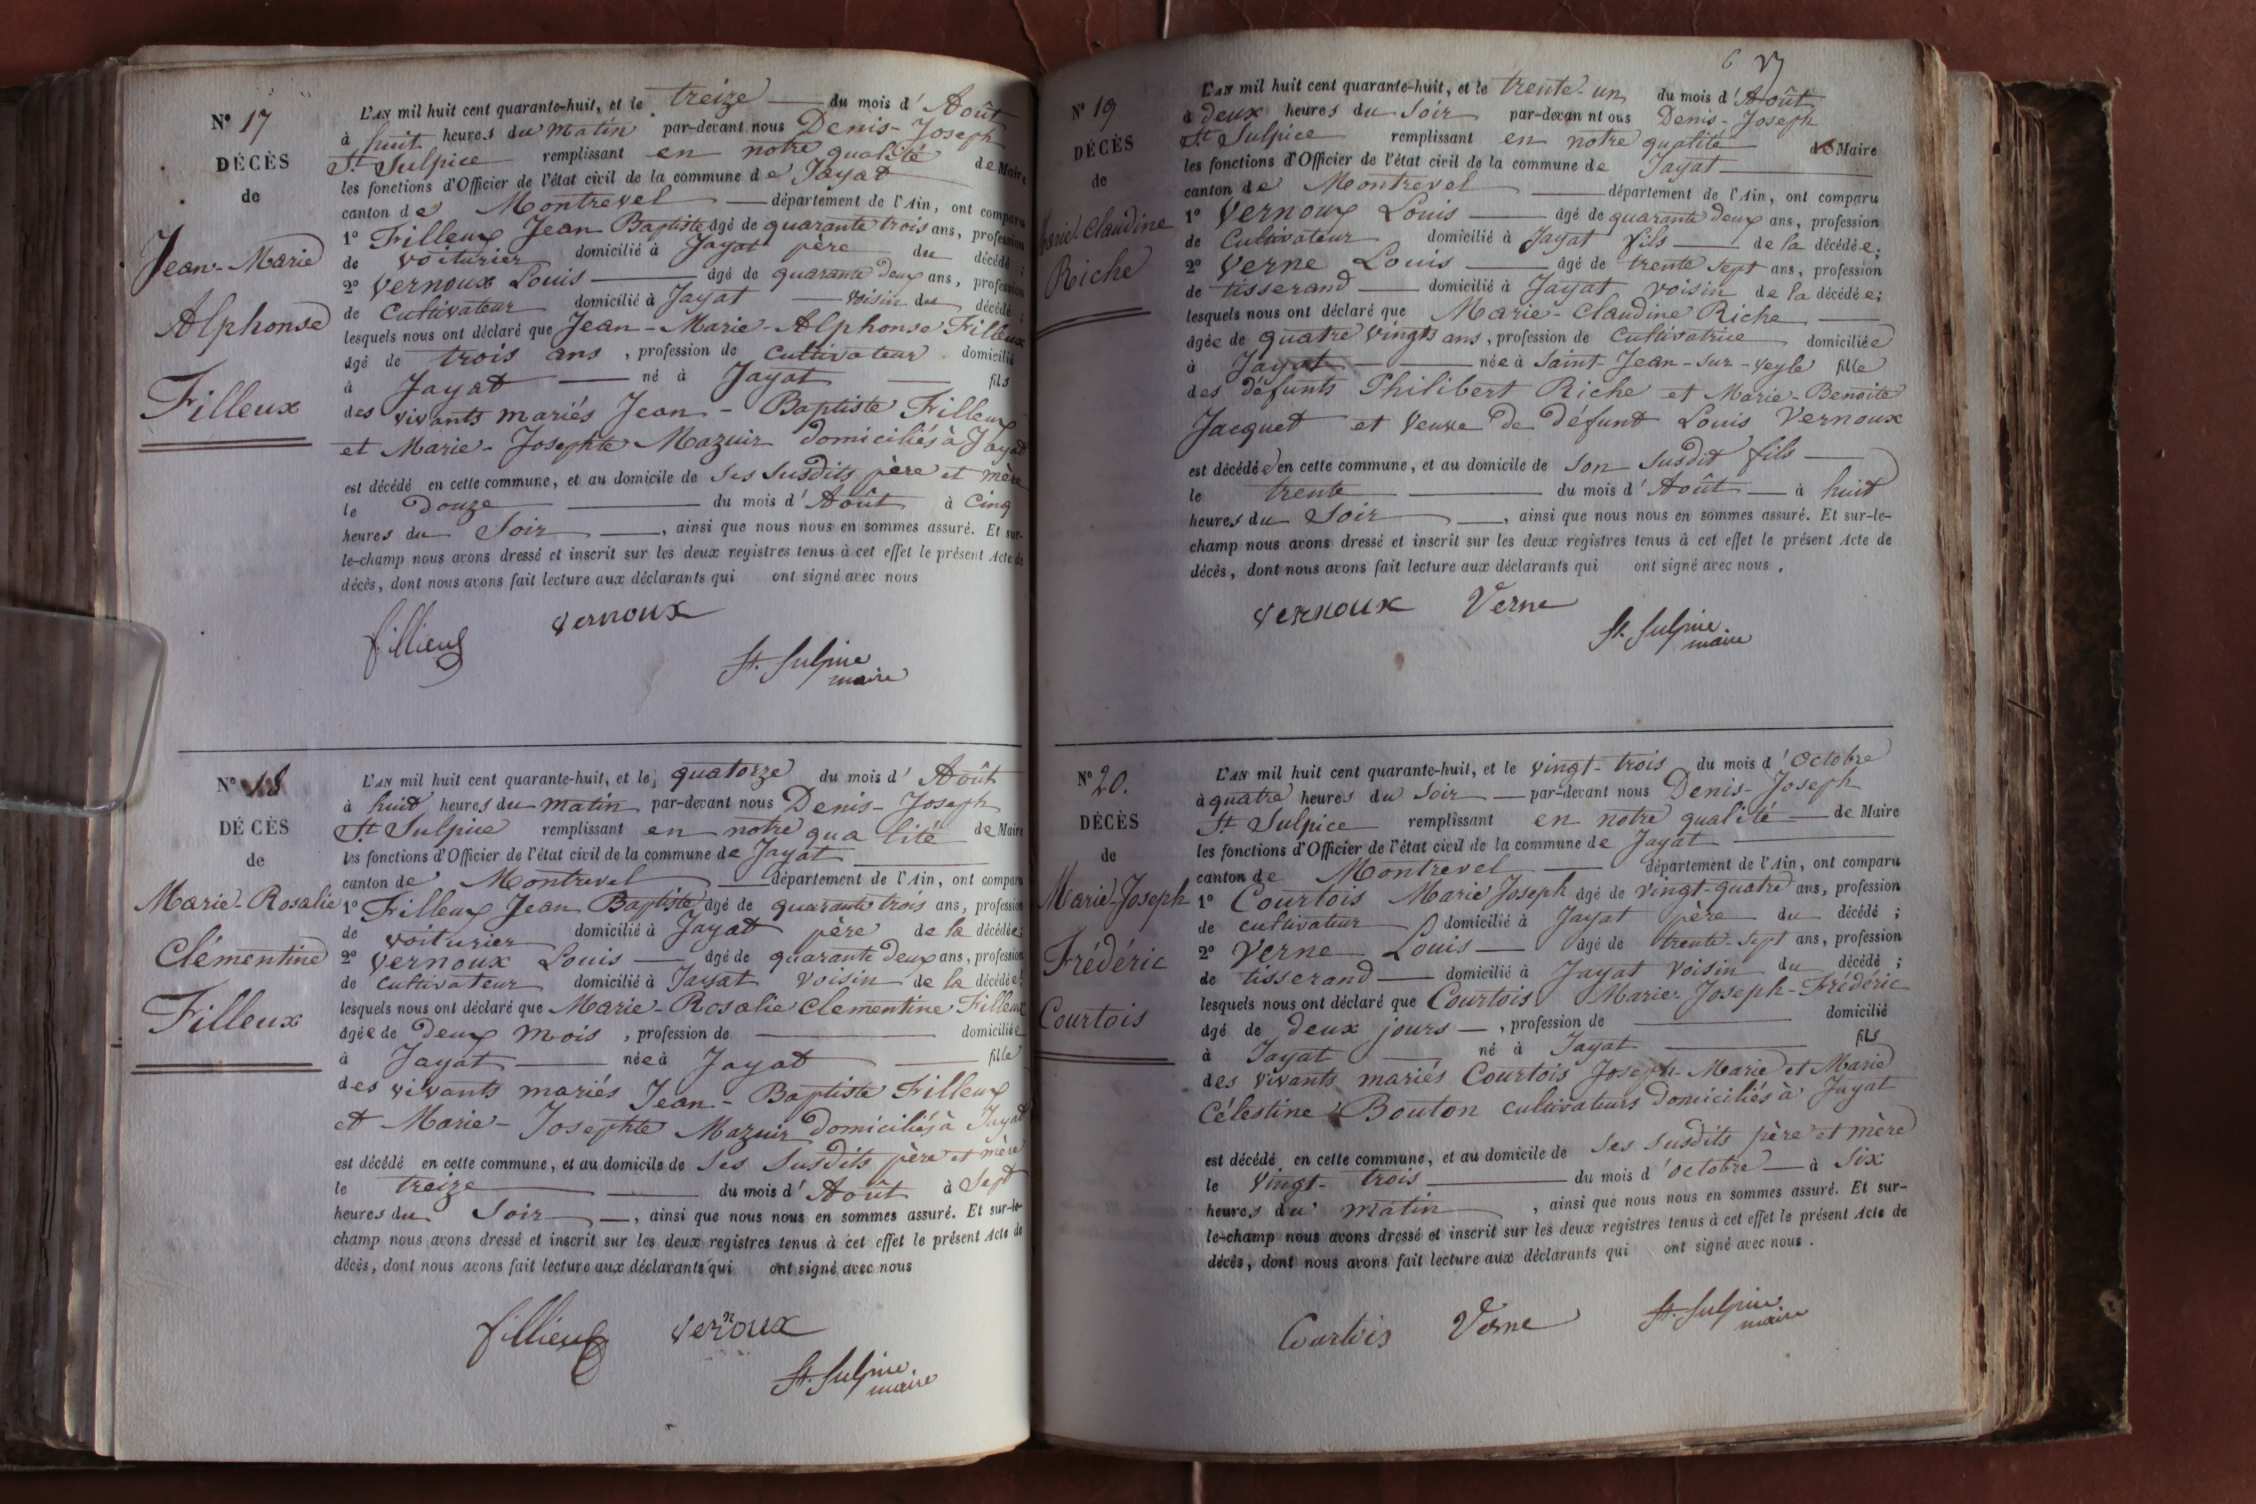 N° 17
DÉCÈS
de
Jean-Marie
Alphonse
Filleux
L'AN mil huit cent quarante-huit, et le treize du mois d'Août
à huit heures du matin par-devant nous Denis-Joseph
St Sulpice remplissant en notre qualité de Maire
les fonctions d'Officier de l'état civil de la commune de Jayat
canton de Montrevel département de l'Ain, ont comparu
1° Filleux Jean Baptiste âgé de quarante trois ans, profession
de voiturier domicilié à Jayat père du décédé ;
2° Vernoux Louis âgé de quarante deux ans, profession
de Cultivateur domicilié à Jayat voisin du décédé ;
lesquels nous ont déclaré que Jean-Marie-Alphonse Filleux
âgé de trois ans, profession de cultivateur domicilié
à Jayat né à Jayat fils
des vivants mariés Jean-Baptiste Filleux
et Marie-Josephte Mazuir domiciliés à Jayat
est décédé en cette commune, et au domicile de ses susdits père et mère
le Douze du mois d'Août à Cinq
heures du Soir, ainsi que nous nous en sommes assuré. Et sur-
le-champ nous avons dressé et inscrit sur les deux registres tenus à cet effet le présent Acte de
décès, dont nous avons fait lecture aux déclarants qui ont signé avec nous
fillieux vernoux
St. Sulpice
maire
N° 18
DÉCÈS
de
Marie-Rosalie
Clémentine
Filleux
L'AN mil huit cent quarante-huit, et le quatorze du mois d'Août
à huit heures du matin par-devant nous Denis-Joseph
St Sulpice remplissant en notre qualité de Maire
les fonctions d'Officier de l'état civil de la commune de Jayat
canton de Montrevel département de l'Ain, ont comparu
1° Filleux Jean Baptiste âgé de quarante trois ans, profession
de voiturier domicilié à Jayat père de la décédée ;
2° Vernoux Louis âgé de quarante deux ans, profession
de cultivateur domicilié à Jayat voisin de la décédée ;
lesquels nous ont déclaré que Marie-Rosalie Clementine Filleux
âgée de Deux mois, profession de domiciliée
à Jayat née à Jayat fille
des vivants mariés Jean-Baptiste Filleux
et Marie-Josephte Mazuir domiciliés à Jayat
est décédé en cette commune, et au domicile de ses susdits père et mère
le treize du mois d'Août à Sept
heures du Soir, ainsi que nous nous en sommes assuré. Et sur-le-
champ nous avons dressé et inscrit sur les deux registres tenus à cet effet le présent Acte de
décès, dont nous avons fait lecture aux déclarants qui ont signé avec nous
fillieux vernoux
St. Sulpice
maire
N° 19
DÉCÈS
de
Marie Claudine
Riche
L'AN mil huit cent quarante-huit, et le trente-un du mois d'Août
à deux heures du Soir par-devan nt ous Denis-Joseph
St Sulpice remplissant en notre qualité de Maire
les fonctions d'Officier de l'état civil de la commune de Jayat
canton de Montrevel département de l'Ain, ont comparu
1° Vernoux Louis âgé de quarante deux ans, profession
de Cultivateur domicilié à Jayat fils de la décédée ;
2° Verne Louis âgé de trente sept ans, profession
de tisserand domicilié à Jayat voisin de la décédée ;
lesquels nous ont déclaré que Marie-Claudine Riche
âgée de quatre vingts ans, profession de Cultivatrice domiciliée
à Jayat née à Saint-Jean-sur-veyle fille
des défunts Philibert Riche et Marie-Benoite
Jacquet et Veuve de défunt Louis Vernoux
est décédée en cette commune, et au domicile de son susdit fils
le trente du mois d'Août à huit
heures du Soir, ainsi que nous nous en sommes assuré. Et sur-le-
champ nous avons dressé et inscrit sur les deux registres tenus à cet effet le présent Acte de
décès, dont nous avons fait lecture aux déclarants qui ont signé avec nous.
vernoux Verne
St. Sulpice
maire
N° 20.
DÉCÈS
de
Marie-Joseph
Frédéric
Courtois
L'AN mil huit cent quarante-huit, et le vingt-trois du mois d'Octobre
à quatre heures du Soir par-devant nous Denis-Joseph
St Sulpice remplissant en notre qualité de Maire
les fonctions d'Officier de l'état civil de la commune de Jayat
canton de Montrevel département de l'Ain, ont comparu
1° Courtois Marie Joseph âgé de vingt-quatre ans, profession
de cultivateur domicilié à Jayat père du décédé ;
2° Verne Louis âgé de trente-sept ans, profession
de tisserand domicilié à Jayat voisin du décédé ;
lesquels nous ont déclaré que Courtois Marie-Joseph-Frédéric
âgé de deux jours, profession de domicilié
à Jayat né à Jayat fils
des vivants mariés Courtois Joseph-Marie et Marie
Célestine Bouton cultivateurs domiciliés à Jayat
est décédé en cette commune, et au domicile de ses susdits père et mère
le Vingt-trois du mois d'octobre à Six
heures du matin, ainsi que nous nous en sommes assuré. Et sur-
le-champ nous avons dressé et inscrit sur les deux registres tenus à cet effet le présent Acte de
décès, dont nous avons fait lecture aux déclarants qui ont signé avec nous.
Courtois Verne St. Sulpice
maire